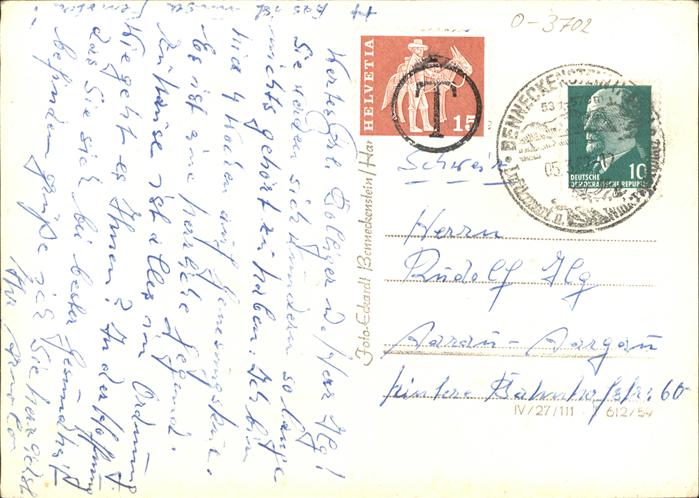 O-3702
HELVETIA
15
T
BENNECKENSTEIN
10
DEUTSCHE
DEMOKRATISCHE REPUBLIK
Schweiz
Herrn
Rudolf Ilg
Aarau-Aargau
hintere Bahnhofstr. 60
IV/27/111 612/59
Foto-Eckardt Benneckenstein/Harz
Wertes Frl. Bolliger u. Herr Ilg!
Sie werden sich wundern so lange
nichts gehört zu haben. Ich bin
hier auf Genesungskur.
Es ist eine herrliche Gegend.
Zuhause ist alles in Ordnung
Wie geht es Ihnen? In der Hoffnung
das Sie sich bei bester Gesundheit
befinden grüße ich Sie herzlichst
Ihr